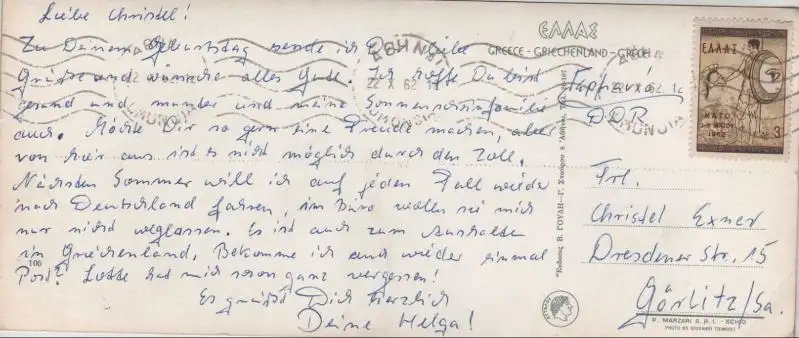 Liebe Christel!
Zu Deinem Geburtstag sende ich Dir liebe
Grüsse und wünsche alles Gute. Ich hoffe Du bist
gesund und munter und meine
auch. Möchte Dir so gern eine Freude machen, aber
von hier aus ist es nicht möglich durch den Zoll.
Nächsten Sommer will ich auf jeden Fall wieder
nach Deutschland fahren, im Büro wollen sie mich
nur nicht weglassen. Es ist auch zum Aushalten
in Griechenland. Bekomme ich auch wieder einmal
Post? Lotte hat mich schon ganz vergessen!
Es grüsst Dich herzlich
Deine Helga!
106
ΕΛΛΑΣ
GREECE - GRIECHENLAND - GRECE
ΑΘΗΝΑΙ
22 X 62
ΟΜΟΝΟΙΑ
ΕΛΛΑΣ
ΝΑΤΟ
3
Γερμανία
DDR
Frl.
Christel Exner
Dresdener Str. 15
Görlitz/Sa.
Ἔκδοσις Β. ΓΟΥΔΗ-Γ.
P. MARZARI S.R.L. - SCHIO